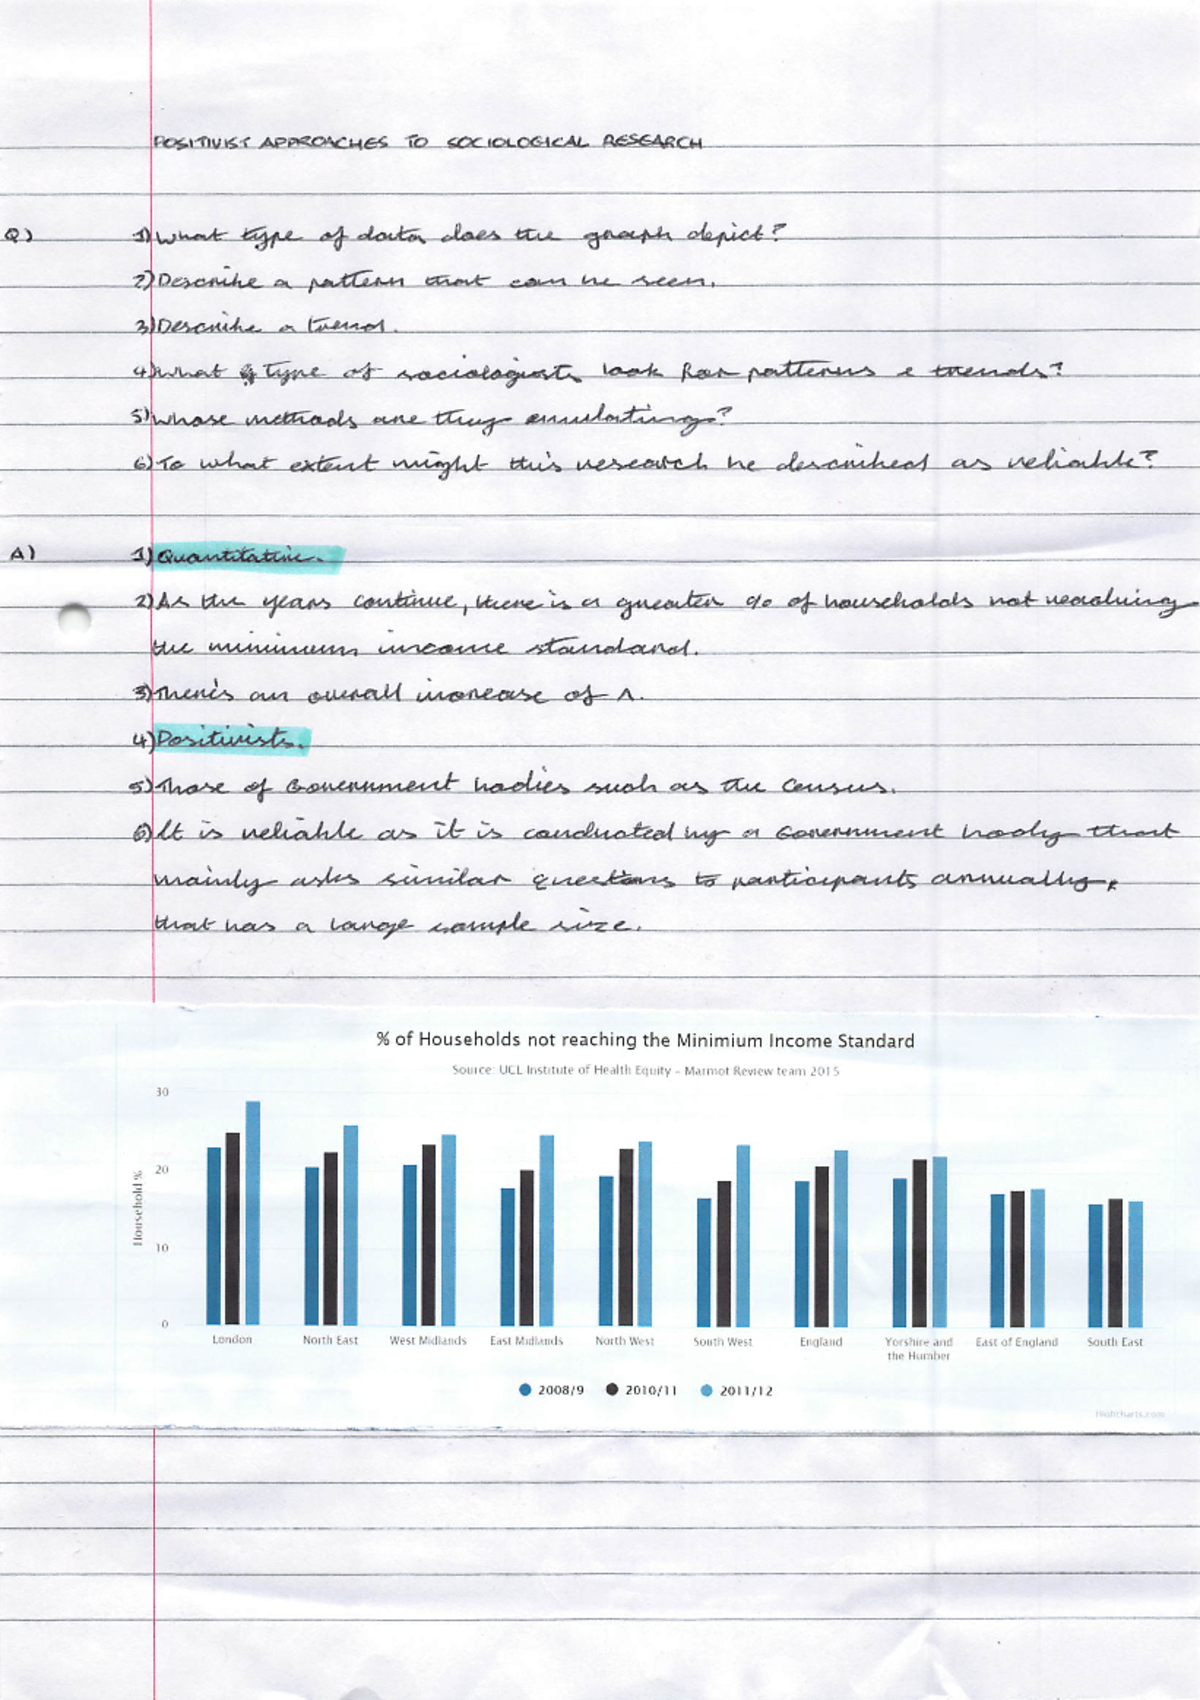 POSITIVIST APPROACHES TO SOCIOLOGICAL RESEARCH
Q) 1) What type of data does the graph depict?
2) Describe a pattern that can be seen.
3) Describe a trend.
4) What type of sociologists look for patterns & trends?
5) Whose methods are they emulating?
6) To what extent might this research be described as reliable?
A) 1) Quantitative.
2) As the years continue, there is a greater % of households not reaching
the minimum income standard.
3) There's an overall increase of ^.
4) Positivists.
5) Those of Government bodies such as the Census.
6) It is reliable as it is conducted by a Government body that
mainly asks similar questions to participants annually,
that has a large sample size.
% of Households not reaching the Minimium Income Standard
Source: UCL Institute of Health Equity – Marmot Review team 2015
30
20
10
0
Household %
London North East West Midlands East Midlands North West South West England Yorshire and East of England South East
the Humber
2008/9 2010/11 2011/12
Highcharts.com